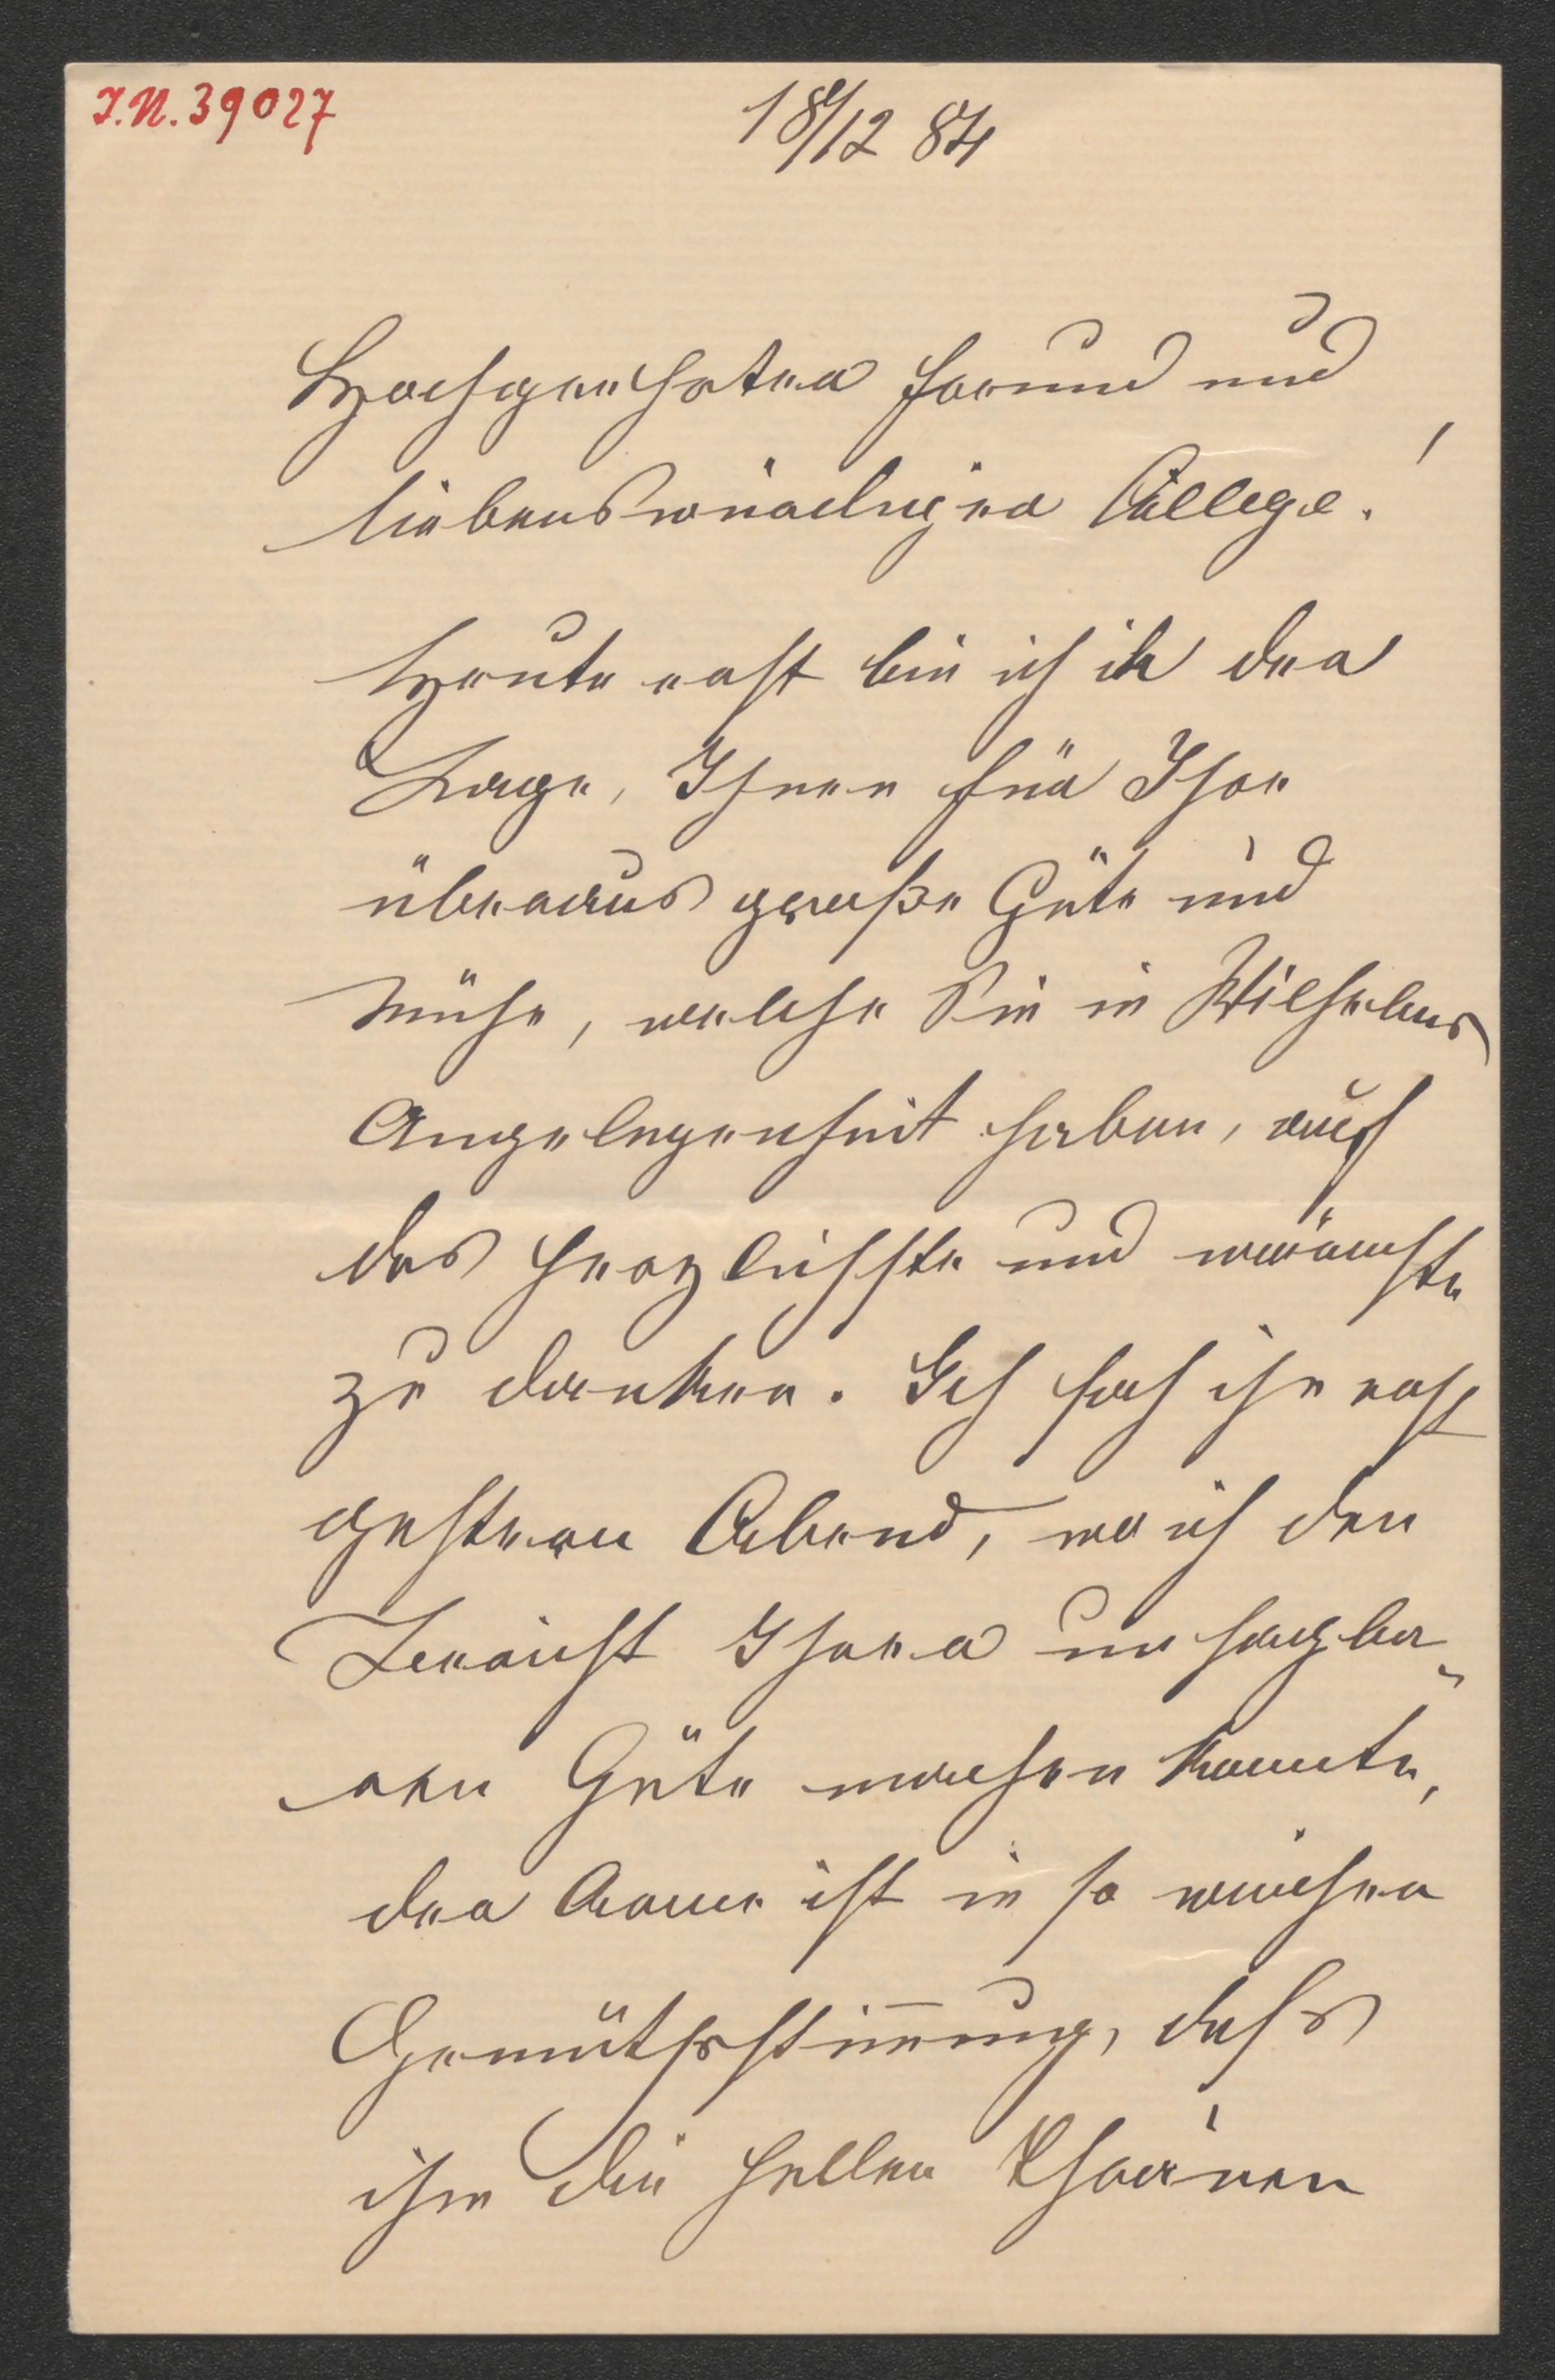 I.N. 39027
18/12 84
Hochgeehrter Freund und
liebenswürdiger College!
Heute erst bin ich in der
Lage, Ihnen für Ihre
überaus große Güte und
Mühe, welche Sie in Wilhelms
Angelegenheit haben, auf
das herzlichste und wärmste
zu danken. Ich sah ihn erst
gestern Abend, wo ich den
Ihrer unsagba-
ren Güte machen konnte,
der Arme ist in so weicher
Gemüthsstim̄ung, dass
ihm die hellen Thränen